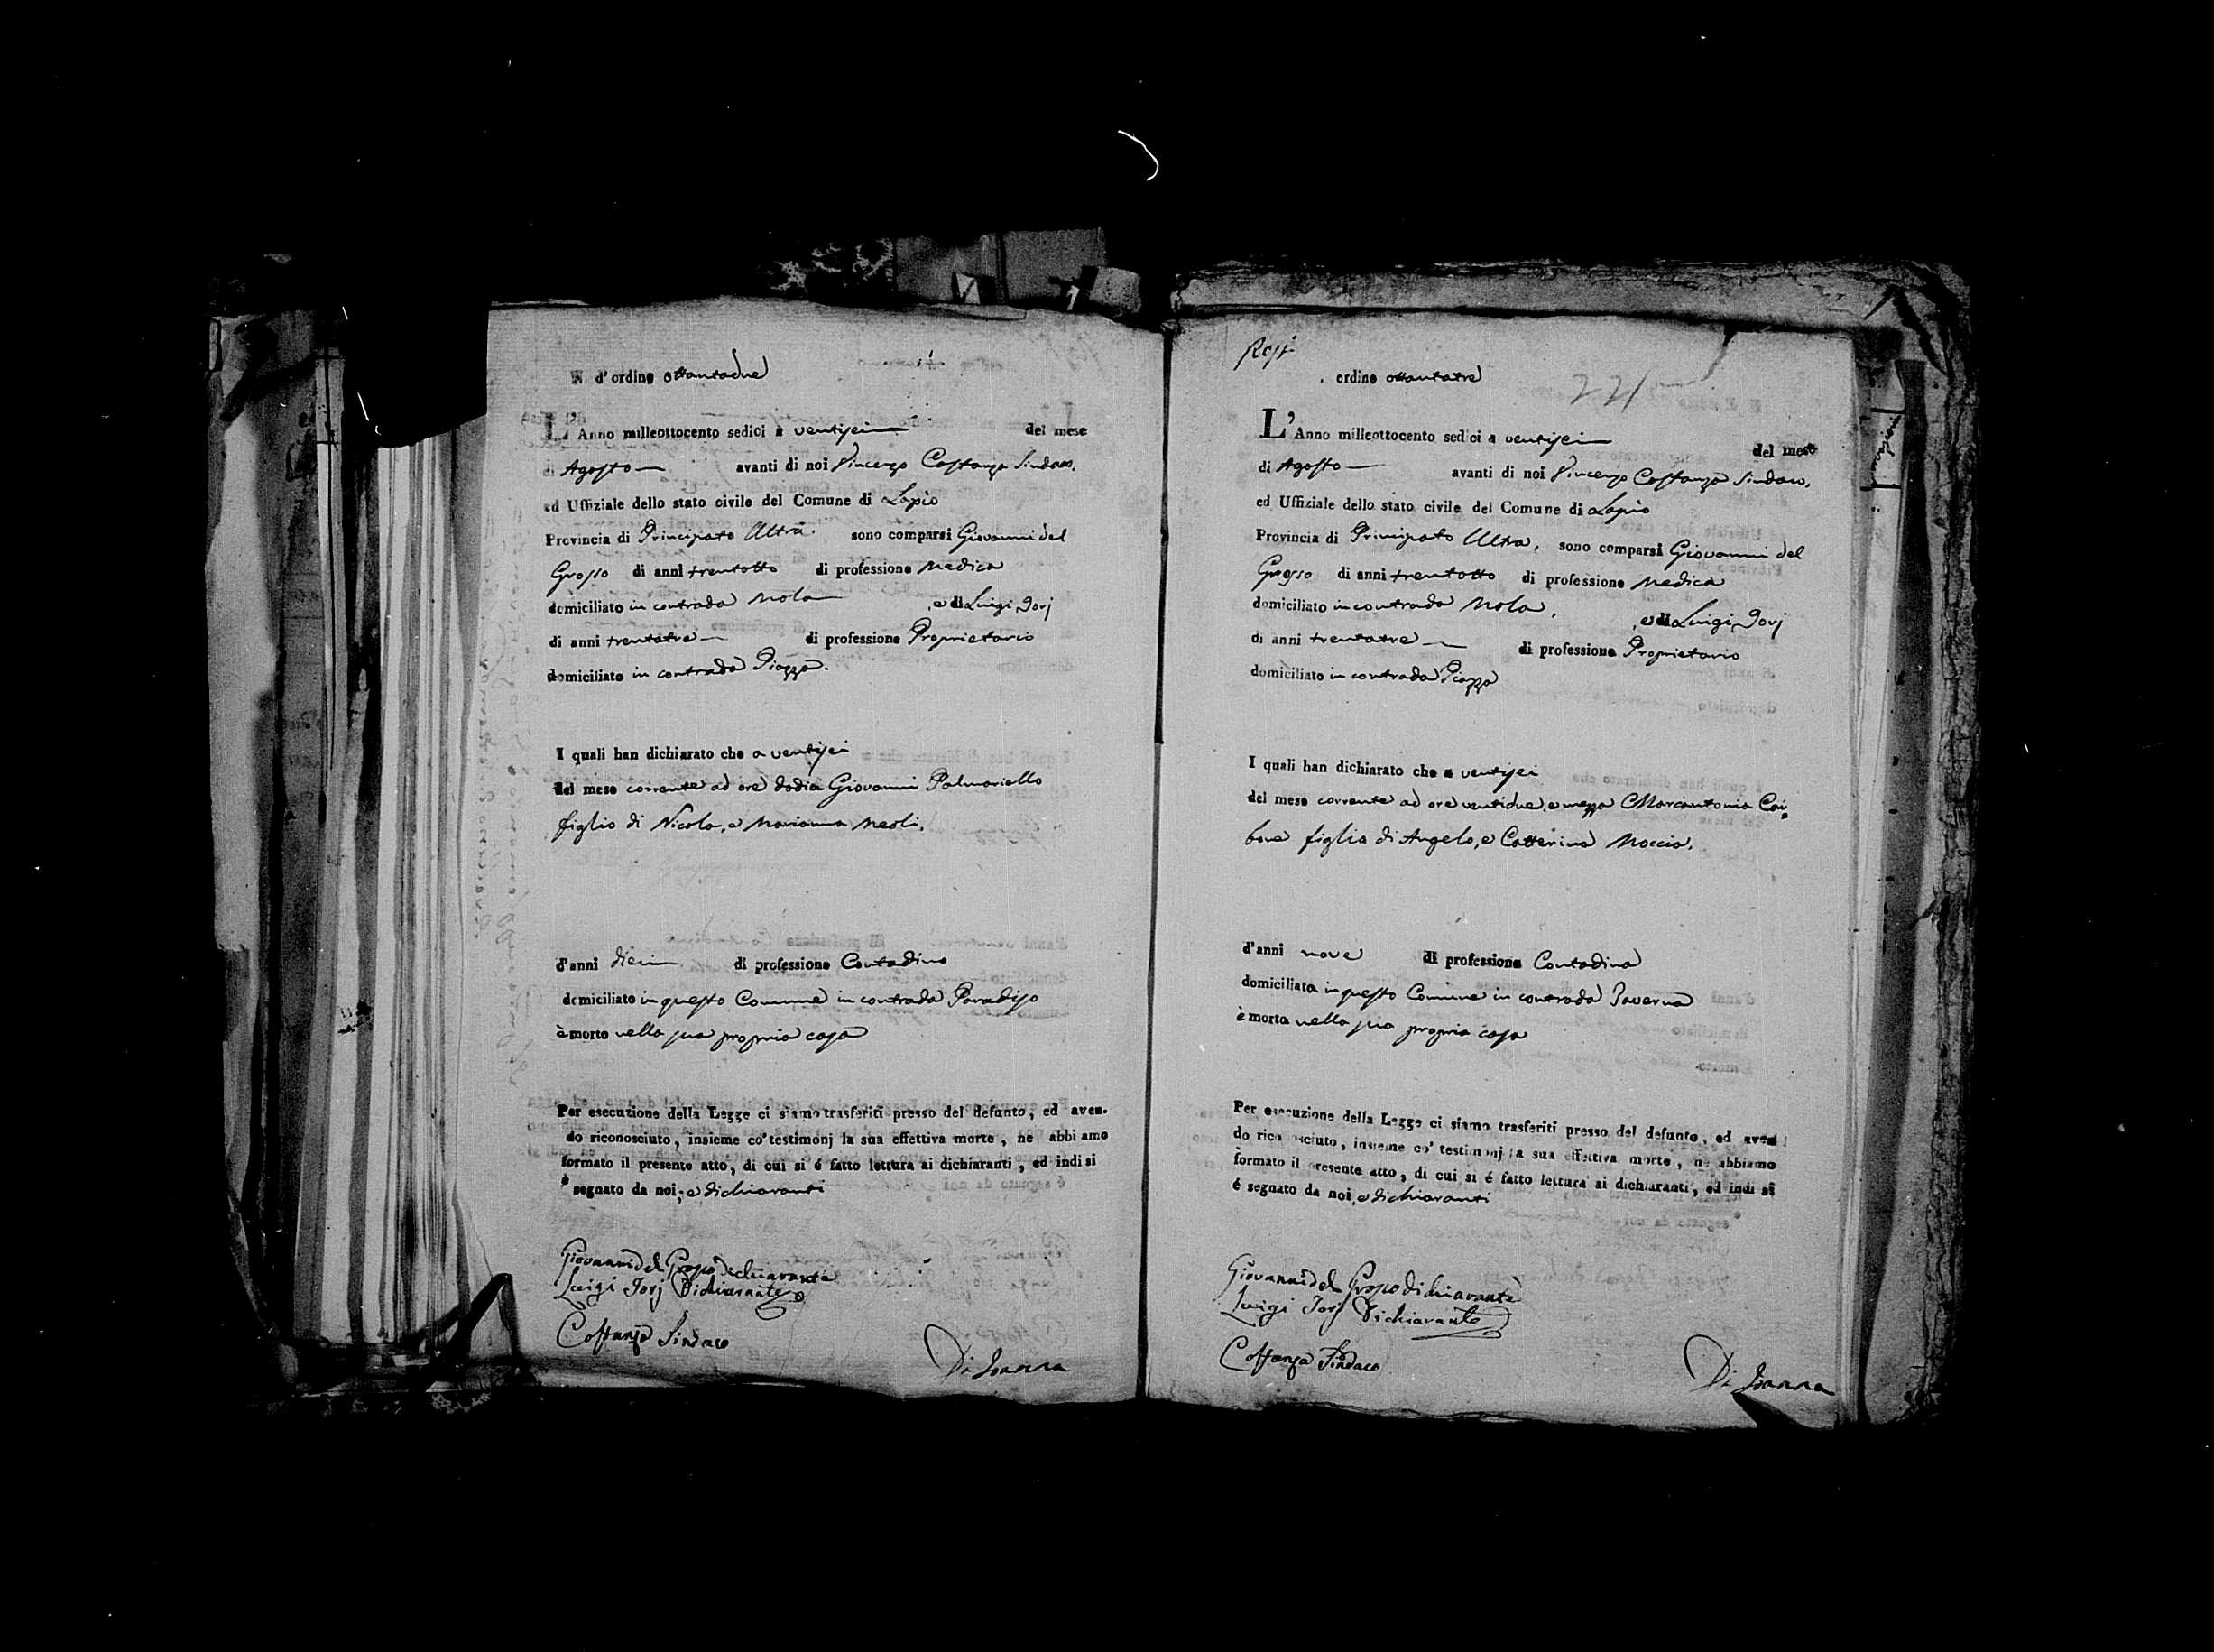 N d'ordine ottantadue
L'Anno milleottocento sedici a ventisei del mese
di Agosto avanti di noi Vincenzo Costanza Sindaco,
ed Uffiziale dello stato civile del Comune di Lapio
Provincia di Principato Ultra. sono comparsi Giovanni del
Grosso di anni trentotto di professione Medico
domiciliato in contrada Mola , e di Luigi Iorj
di anni trentatre di professione Proprietario
domiciliato in contrada Piazza.
I quali han dichiarato che a ventisei
del mese corrente ad ore dodici Giovanni Palmariello
figlio di Nicola, e Marianna Meoli.
d'anni dieci di professione Contadino
domiciliato in questo Comune in contrada Paradiso
è morto nella sua propria casa
Per esecuzione della Legge ci siamo trasferiti presso del defunto, ed aven-
do riconosciuto, insieme co' testimonj la sua effettiva morte, ne abbiamo
formato il presente atto, di cui si é fatto lettura ai dichiaranti, ed indi si
segnato da noi, e dichiaranti
Giovanni del Grosso Dichiarante
Luigi Iorj Dichiarante
Costanza Sindaco
Di Ioanna
ordine ottantatre
221
L'Anno milleottocento sedici a ventisei del mese
di Agosto avanti di noi Vincenzo Costanza Sindaco,
ed Uffiziale dello stato civile del Comune di Lapio
Provincia di Principato Ultra, sono comparsi Giovanni del
Grosso di anni trentotto di professione Medico
domiciliato in contrada Mola, , e di Luigi Iorj
di anni trentatre di professione Proprietario
domiciliato in contrada Piazza
I quali han dichiarato che a ventisei
del mese corrente ad ore ventidue, e mezza Marcantonia Cai-
bone figlia di Angelo, e Catterina Moccia.
d'anni nove di professione Contadina
domiciliata in questo Comune in contrada Taverna
è morta nella sua propria casa
Per esecuzione della Legge ci siamo trasferiti presso del defunto, ed aven
do riconosciuto, insieme co' testimonj la sua effettiva morte, ne abbiamo
formato il presente atto, di cui si é fatto lettura ai dichiaranti, ed indi si
é segnato da noi, e dichiaranti
Giovanni del Grosso Dichiarante
Luigi Iorj Dichiarante
Costanza Sindaco
Di Ioanna